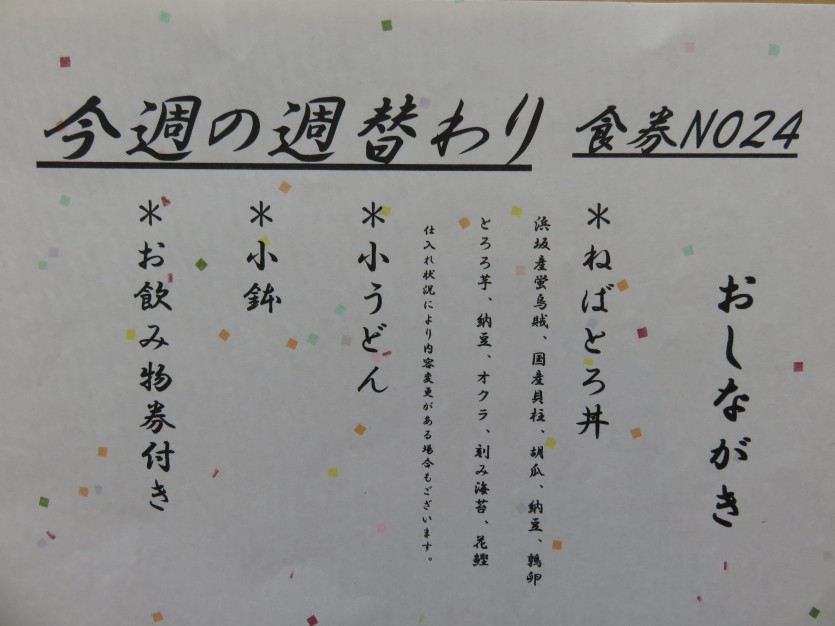 今週の週替わり
食券NO24
おしながき
＊ねばとろ丼
浜坂産蛍烏賊、国産貝柱、胡瓜、納豆、鶉卵
とろろ芋、納豆、オクラ、刻み海苔、花鰹
仕入れ状況により内容変更がある場合もございます。
＊小うどん
＊小鉢
＊お飲み物券付き